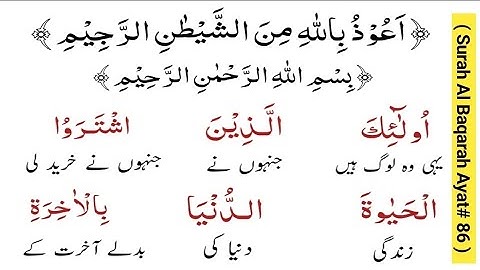 ﴿ اَعُوْذُ بِاللهِ مِنَ الشَّيْطٰنِ الرَّجِيْمِ ﴾
﴿ بِسْمِ اللهِ الرَّحْمٰنِ الرَّحِيْمِ ﴾
اُولٰٓئِكَ الَّذِيْنَ اشْتَرَوُا
یہی وہ لوگ ہیں جنہوں نے جنہوں نے خرید لی
الْحَيٰوةَ الدُّنْيَا بِالْاٰخِرَةِ
زندگی دنیا کی بدلے آخرت کے
( Surah Al Baqarah Ayat# 86 )